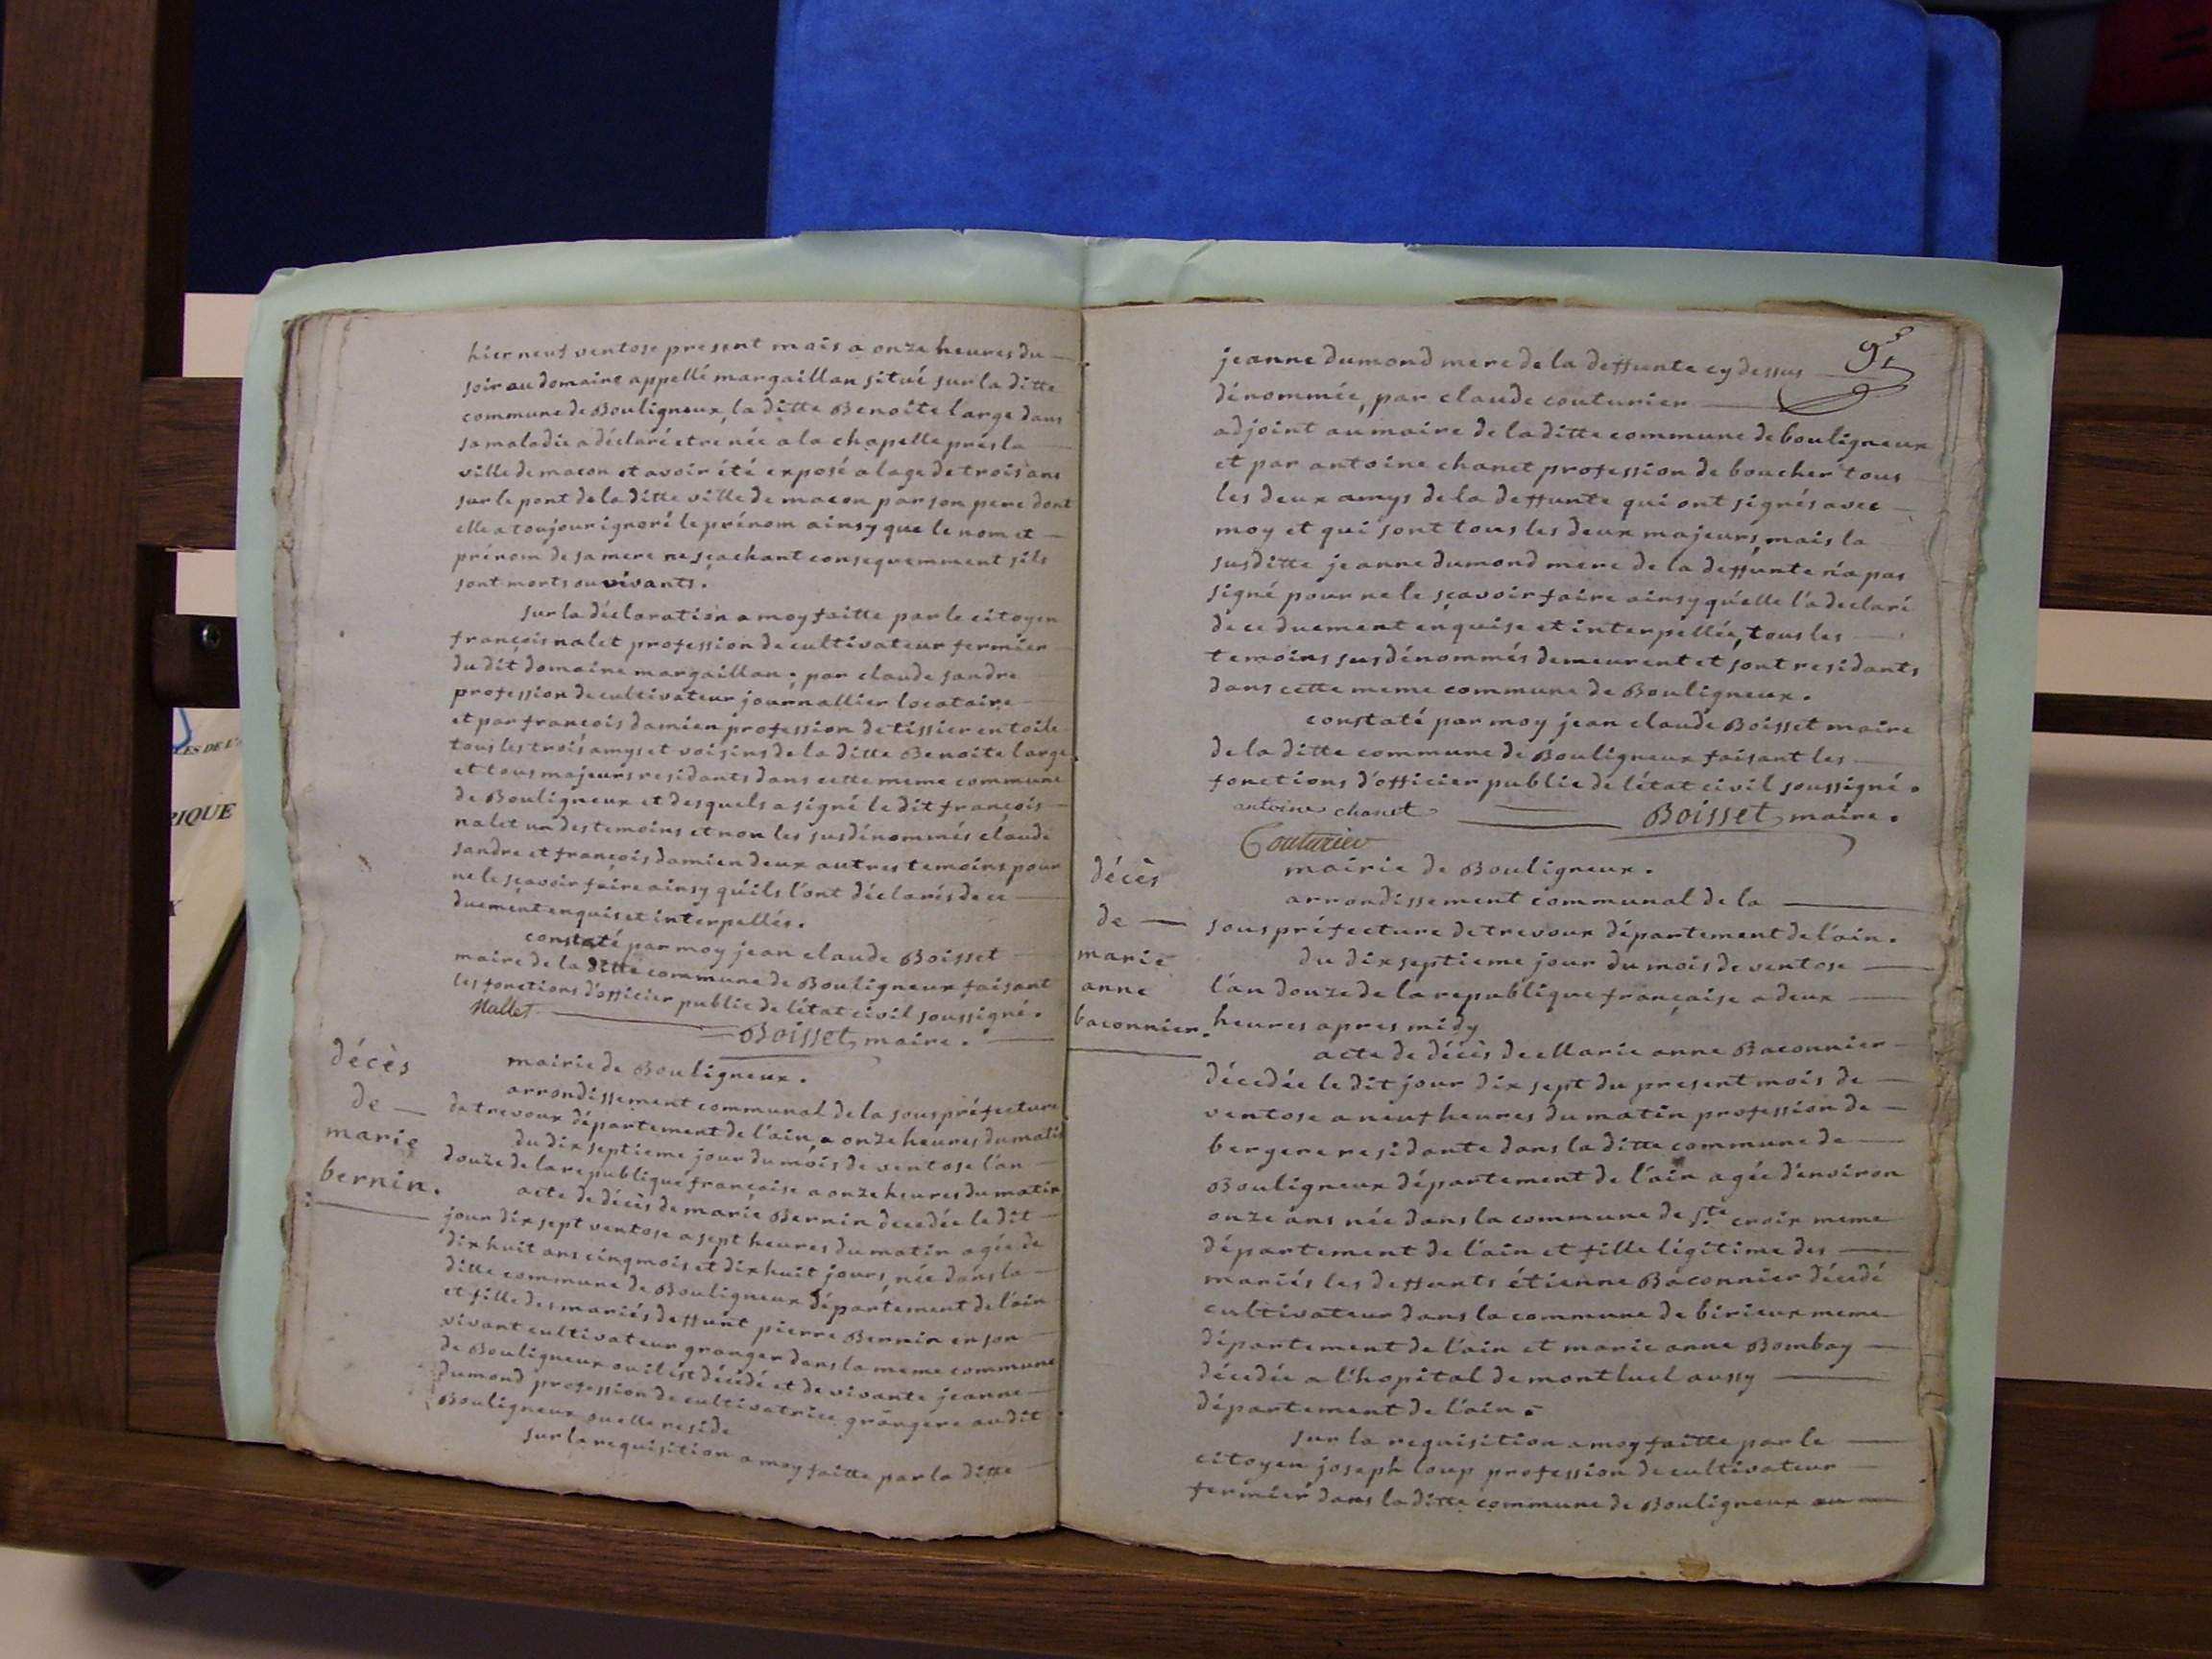 hier neuf ventose present mois a onze heures du
soir au domaine appellé margaillan situé sur la ditte
commune de Bouligneux, la ditte Benoite large dans
sa maladie a déclaré etre née a la chapelle prés la
ville de macon et avoir été exposé a lage de trois ans
sur le pont de la ditte ville de macon par son pere dont
elle a toujour ignoré le prénom ainsy que le nom et
prénom de sa mere ne sçachant consequemment sils
sont morts ou vivants.
sur la déclaration a moy faitte par le citoyen
françois nalet profession de cultivateur fermier
du dit domaine margaillan; par claude sandre
profession de cultivateur journallier locataire
et par françois damien profession de tissier en toile
tous les trois amys et voisins de la ditte Benoite large
et tous majeurs residants dans cette meme commune
de Bouligneux et desquels a signé le dit françois
nalet un des temoins et non les susdénommés claude
sandre et françois damien deux autres temoins pour
ne le sçavoir faire ainsy qu'ils l'ont déclarés de ce
duement enquis et interpellés.
constaté par moy jean claude Boisset
maire de la ditte commune de Bouligneux faisant
les fonctions d'officier public de l'état civil soussigné.
Nallet Boisset maire.
décès
de
marie
bernin.
mairie de Bouligneux.
arrondissement communal de la souspréfecture
de trevoux département de l'ain, a onze heures du matin
du dix septieme jour du mois de ventose l'an
douze de la republique française a onze heures du matin
acte de décès de marie Bernin decedée le dit
jour dix sept ventose a sept heures du matin agée de
dix huit ans cinq mois et dix huit jours, née dans la
ditte commune de Bouligneux département de l'ain
et fille des mariés deffunt pierre Bernin en son
vivant cultivateur granger dans la meme commune
de Bouligneux ou il est décédé et de vivante jeanne
dumond profession de cultivatrice grangere au dit
Bouligneux ou elle reside
sur la requisition a moy faitte par la ditte
jeanne dumond mere de la deffunte cy dessus
dénommée, par claude couturier
adjoint au maire de la ditte commune de bouligneux
et par antoine chanet profession de boucher tous
les deux amys de la deffunte qui ont signés avec
moy et qui sont tous les deux majeurs, mais la
susditte jeanne dumond mere de la deffunte n'a pas
signé pour ne le sçavoir faire ainsy qu'elle l'a declaré
de ce duement enquise et interpellée, tous les
temoins susdénommés demeurent et sont residants
dans cette meme commune de Bouligneux.
constaté par moy jean claude Boisset maire
de la ditte commune de Bouligneux faisant les
fonctions d'officier public de l'état civil soussigné.
antoine chanet Boisset maire.
Couturier
décès
de
marie
anne
baconnier.
mairie de Bouligneux.
arrondissement communal de la
sous préfecture de trevoux département de l'ain.
du dix septieme jour du mois de ventose
l'an douze de la republique française a deux
heures apres midy
acte de décès de Marie anne Baconnier
décedée le dit jour dix sept du present mois de
ventose a neuf heures du matin profession de
bergere residante dans la ditte commune de
Bouligneux département de l'ain agée d'environ
onze ans née dans la commune de Ste croix meme
département de l'ain et fille légitime des
mariés les deffunts étienne Baconnier décedé
cultivateur dans la commune de birieux meme
département de l'ain et marie anne Bombay
décedée a l'hopital de montluel aussy
département de l'ain.
sur la requisition a moy faitte par le
citoyen joseph loup profession de cultivateur
fermier dans la ditte commune de Bouligneux au
RIQUE